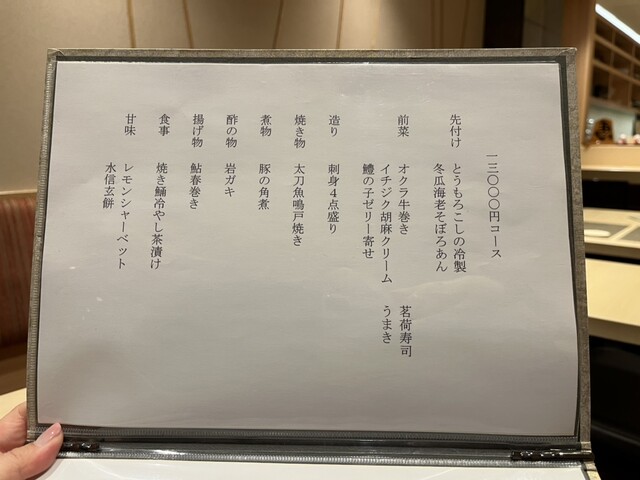 一三〇〇〇円コース
先付け　とうもろこしの冷製
冬瓜海老そぼろあん
前菜　オクラ牛巻き　茗荷寿司
イチジク胡麻クリーム　うまき
鱧の子ゼリー寄せ
造り　刺身４点盛り
焼き物　太刀魚鳴戸焼き
煮物　豚の角煮
酢の物　岩ガキ
揚げ物　鮎春巻き
食事　焼き鯒冷やし茶漬け
甘味　レモンシャーベット
水信玄餅